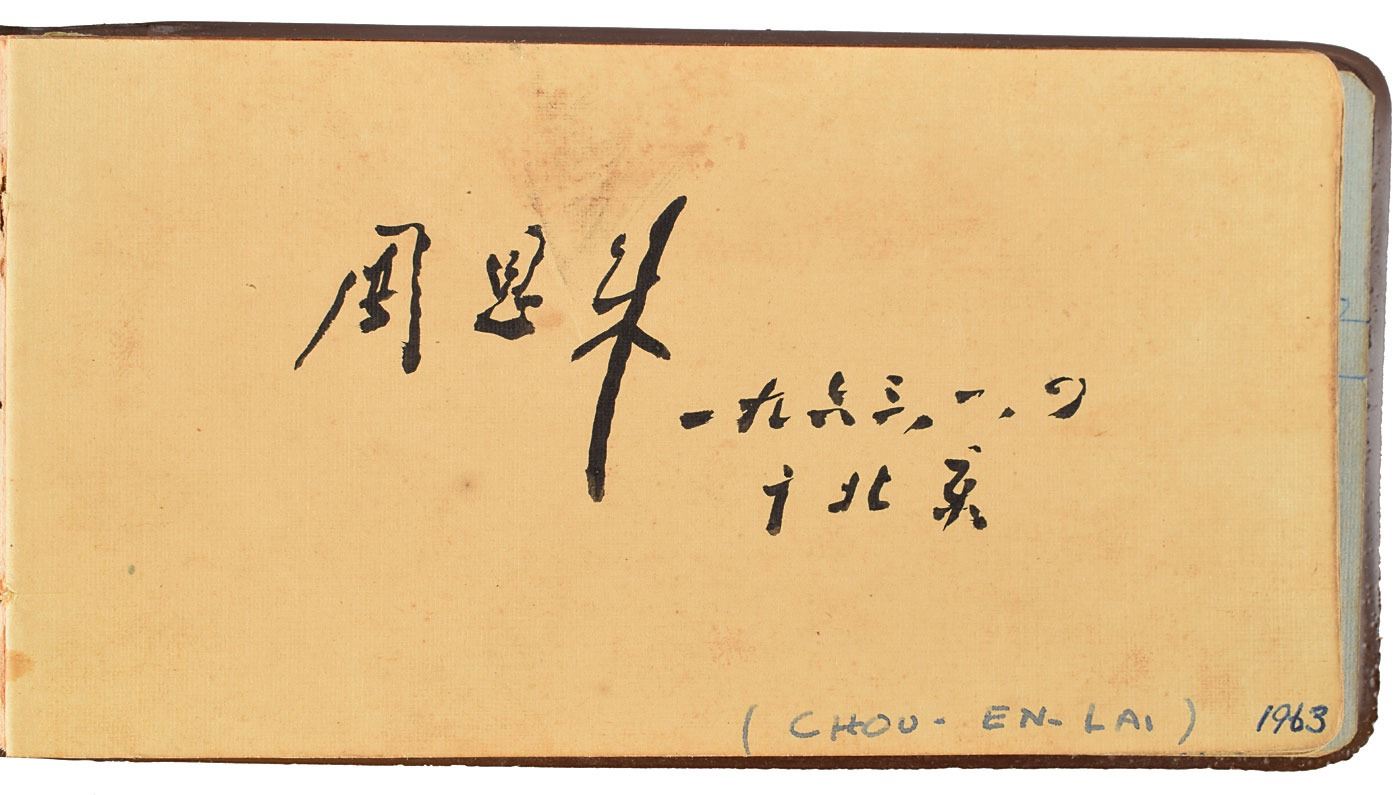 周恩来
一九六三，一，四
于北京
( CHOU - EN - LAI ) 1963